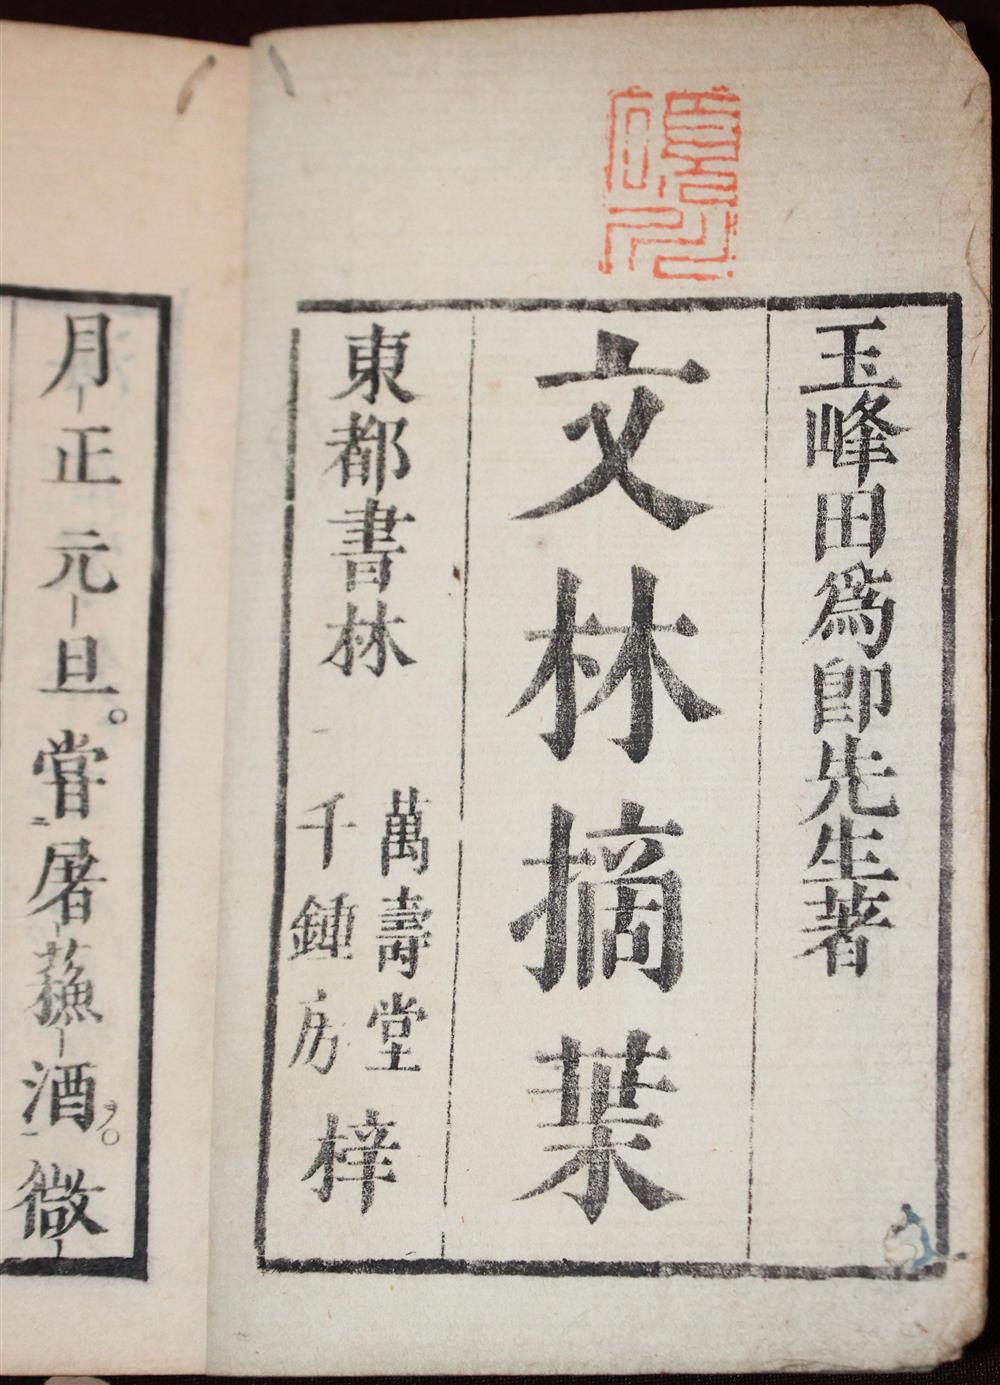 玉峰田爲卽先生著
文林摘葉
東都書林
萬壽堂
千鍾房
梓
月正元旦。嘗屠蘓酒。ヲ微